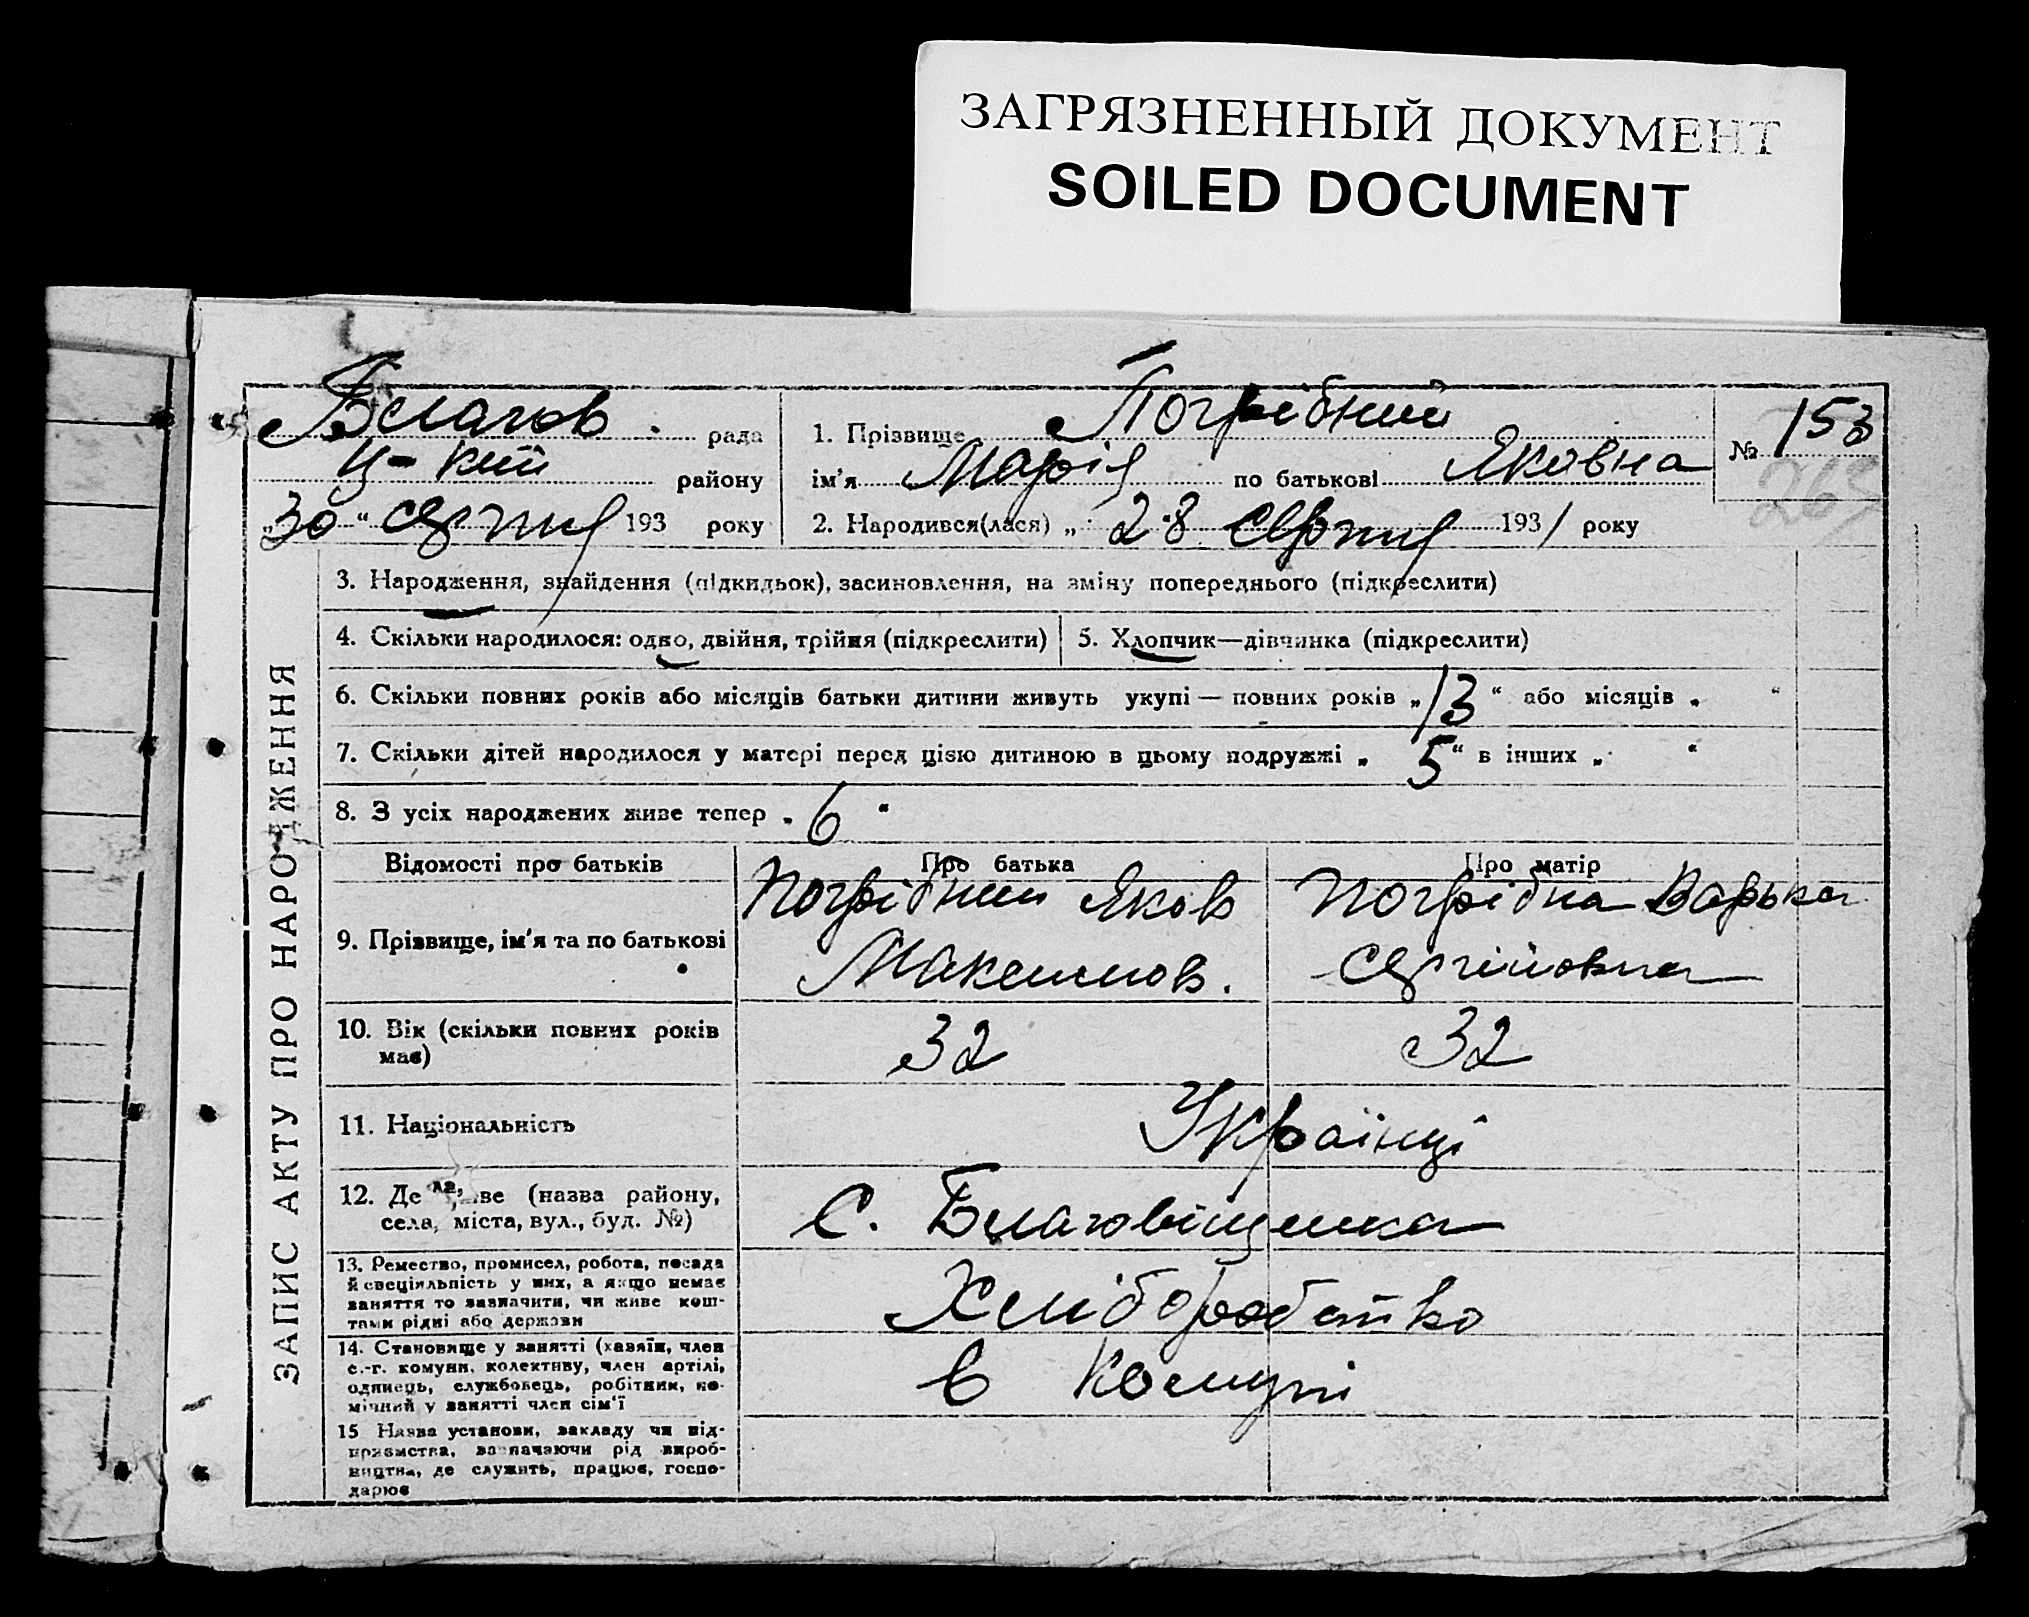 ЗАГРЯЗНЕННЫЙ ДОКУМЕНТ
SOILED DOCUMENT
Благов. рада
Ц-кий району
„30“ серпня 193 року
1. Прізвище Погрібний
ім'я Марія по батькові Яковна
2. Народився(лася) „ 28 серпня 1931 року
№ 153
ЗАПИС АКТУ ПРО НАРОДЖЕННЯ
3. Народження, знайдення (підкидьок), засиновлення, на зміну попереднього (підкреслити)
4. Скільки народилося: одно, двійня, трійня (підкреслити)
5. Хлопчик—дівчинка (підкреслити)
6. Скільки повних років або місяців батьки дитини живуть укупі — повних років „13“ або місяців „ “
7. Скільки дітей народилося у матері перед цією дитиною в цьому подружжі „ 5“ в інших „ “
8. З усіх народжених живе тепер „ 6 “
Відомості про батьків
Про батька
Про матір
9. Прізвище, ім'я та по батькові
Погрібний Яков
Максимов.
Погрібна Варька
Сергійовна
10. Вік (скільки повних років
має)
32
32
11. Національність
Українці
12. Де (назва району,
села, міста, вул., буд. №)
С. Благовіщенка
13. Ремество, промисел, робота, посада
й спеціяльність у них, а якщо немає
заняття то зазначити, чи живе кош-
тами рідні або держави
Хліборобство
14. Становище у занятті (хазяїн, член
с.-г. комуни, колективу, член артілі,
одинець, службовець, робітник, по-
мічний у занятті член сім'ї
в комуні
15 Назва установи, закладу чи під-
приємства, зазначаючи рід вироб-
ництва, де служить, працює, госпо-
дарює